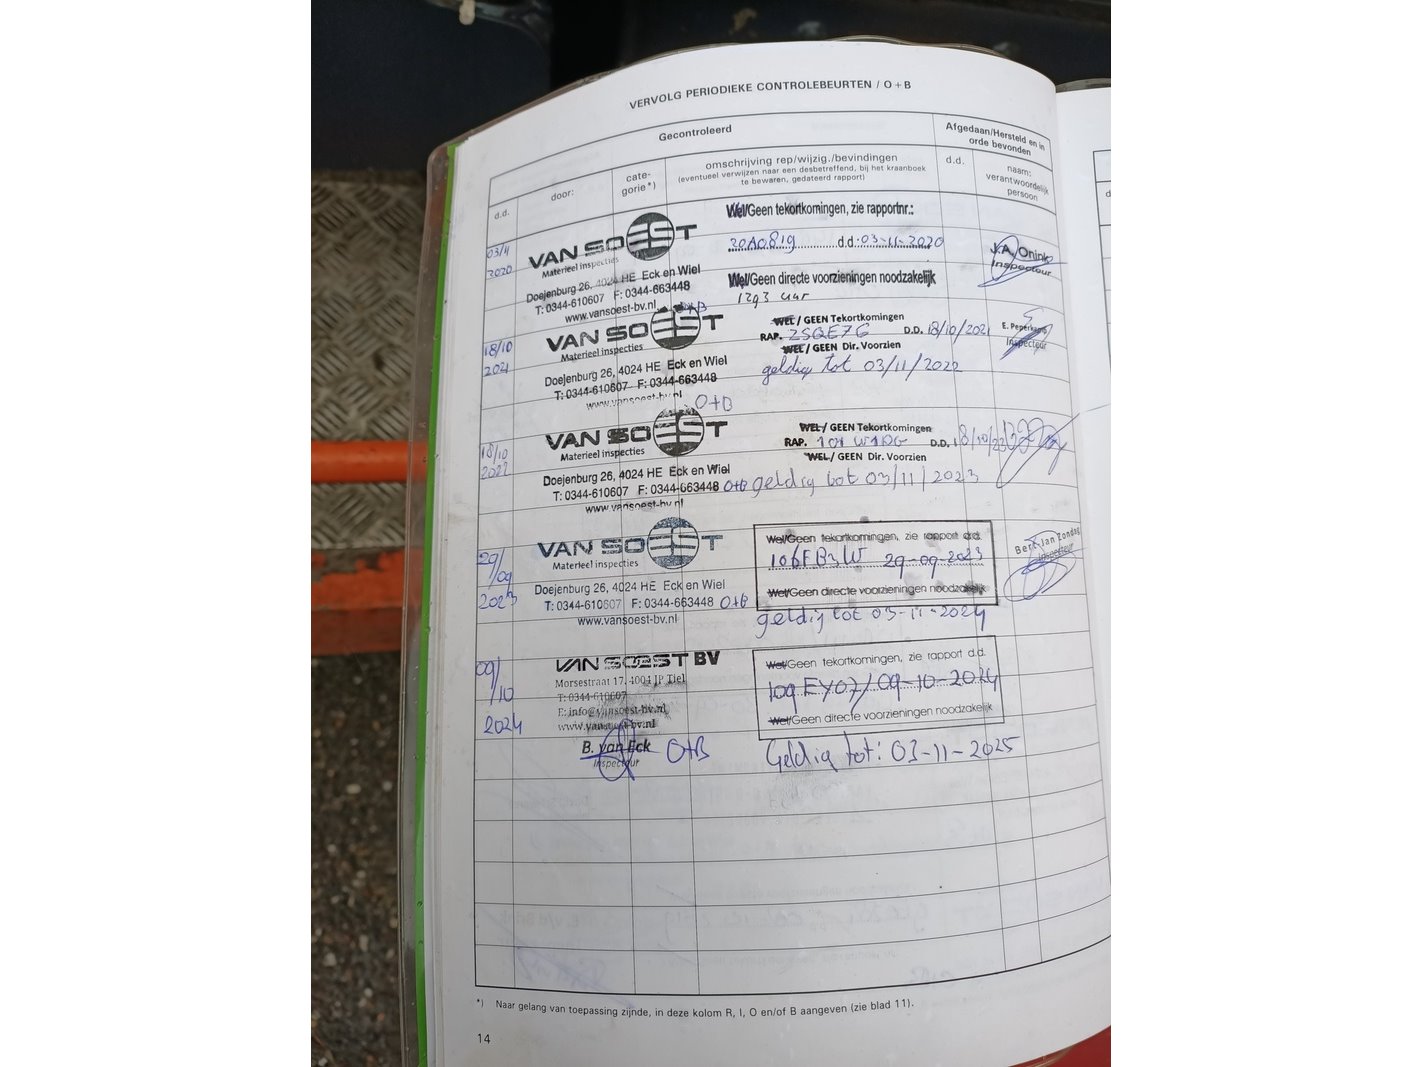 VERVOLG PERIODIEKE CONTROLEBEURTEN / O + B
Gecontroleerd
Afgedaan/Hersteld en in
orde bevonden
d.d.
door:
cate-
gorie*)
omschrijving rep/wijzig./bevindingen
(eventueel verwijzen naar een desbetreffend, bij het kraanboek
te bewaren, gedateerd rapport)
d.d.
naam:
verantwoordelijk
persoon
03/11
2020
VAN SOEST
Materieel inspecties
Doejenburg 26, 4024 HE Eck en Wiel
T: 0344-610607 F: 0344-663448
www.vansoest-bv.nl
O+B
Wel/Geen tekortkomingen, zie rapportnr.:
20A0819 d.d. 03-11-2020
Wel/Geen directe voorzieningen noodzakelijk
1293 uur
J.A. Onink
Inspecteur
18/10
2021
VAN SOEST
Materieel inspecties
Doejenburg 26, 4024 HE Eck en Wiel
T: 0344-610607 F: 0344-663448
www.vansoest-bv.nl
O+B
WEL / GEEN Tekortkomingen
RAP. ZSQE7G D.D. 18/10/2021
WEL / GEEN Dir. Voorzien
geldig tot 03/11/2022
E. Peperkamp
Inspecteur
18/10
2022
VAN SOEST
Materieel inspecties
Doejenburg 26, 4024 HE Eck en Wiel
T: 0344-610607 F: 0344-663448
www.vansoest-bv.nl
O+B
WEL / GEEN Tekortkomingen
RAP. D.D. 18/10/22
WEL / GEEN Dir. Voorzien
geldig tot 03/11/2023
29/
09
2023
VAN SOEST
Materieel inspecties
Doejenburg 26, 4024 HE Eck en Wiel
T: 0344-610607 F: 0344-663448
www.vansoest-bv.nl
O+B
Wel/Geen tekortkomingen, zie rapport d.d.
106FB3W 29-09-2023
Wel/Geen directe voorzieningen noodzakelijk
geldig tot 03-11-2024
Bert-Jan Zondag
Inspecteur
09/
10
2024
VAN SOEST BV
Morsestraat 17, 4004 JP Tiel
T: 0344-610607
E: info@vansoest-bv.nl
www.vansoest-bv.nl
B. van Eck
Inspecteur
O+B
Wel/Geen tekortkomingen, zie rapport d.d.
109EY07/09-10-2024
Wel/Geen directe voorzieningen noodzakelijk
Geldig tot: 03-11-2025
*) Naar gelang van toepassing zijnde, in deze kolom R, I, O en/of B aangeven (zie blad 11).
14